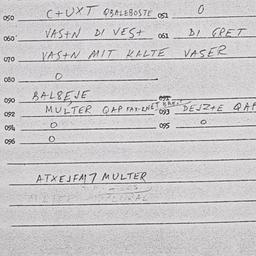 050 C+UXT QBALEBOSTE 051 0
060 VAS+N DI VEST 061 DI GRET
070 VAS+N MIT KALTE VASER
080 0
090 BALBEJE 091
092 MULTER QAP FAX-ZNET 093 DEJZ+E QAP
094 0 095 0
096 0
ATXEJFM7 MULTER